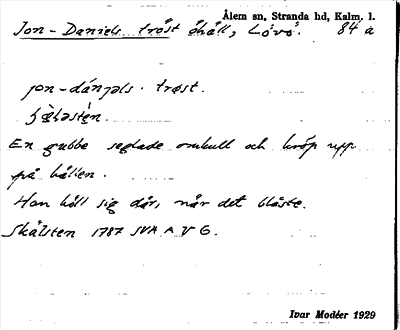 Ålem sn, Stranda hd, Kalm. l.
Jon-Daniels tröst öhäll, Lövö. 84 a
jon-dánjəls. trøst.
En gubbe seglade omkull och kröp upp
på hällen.
Han höll sig där, när det blåste.
Skälsten 1787 SVA A V 6.
Ivar Modéer 1929